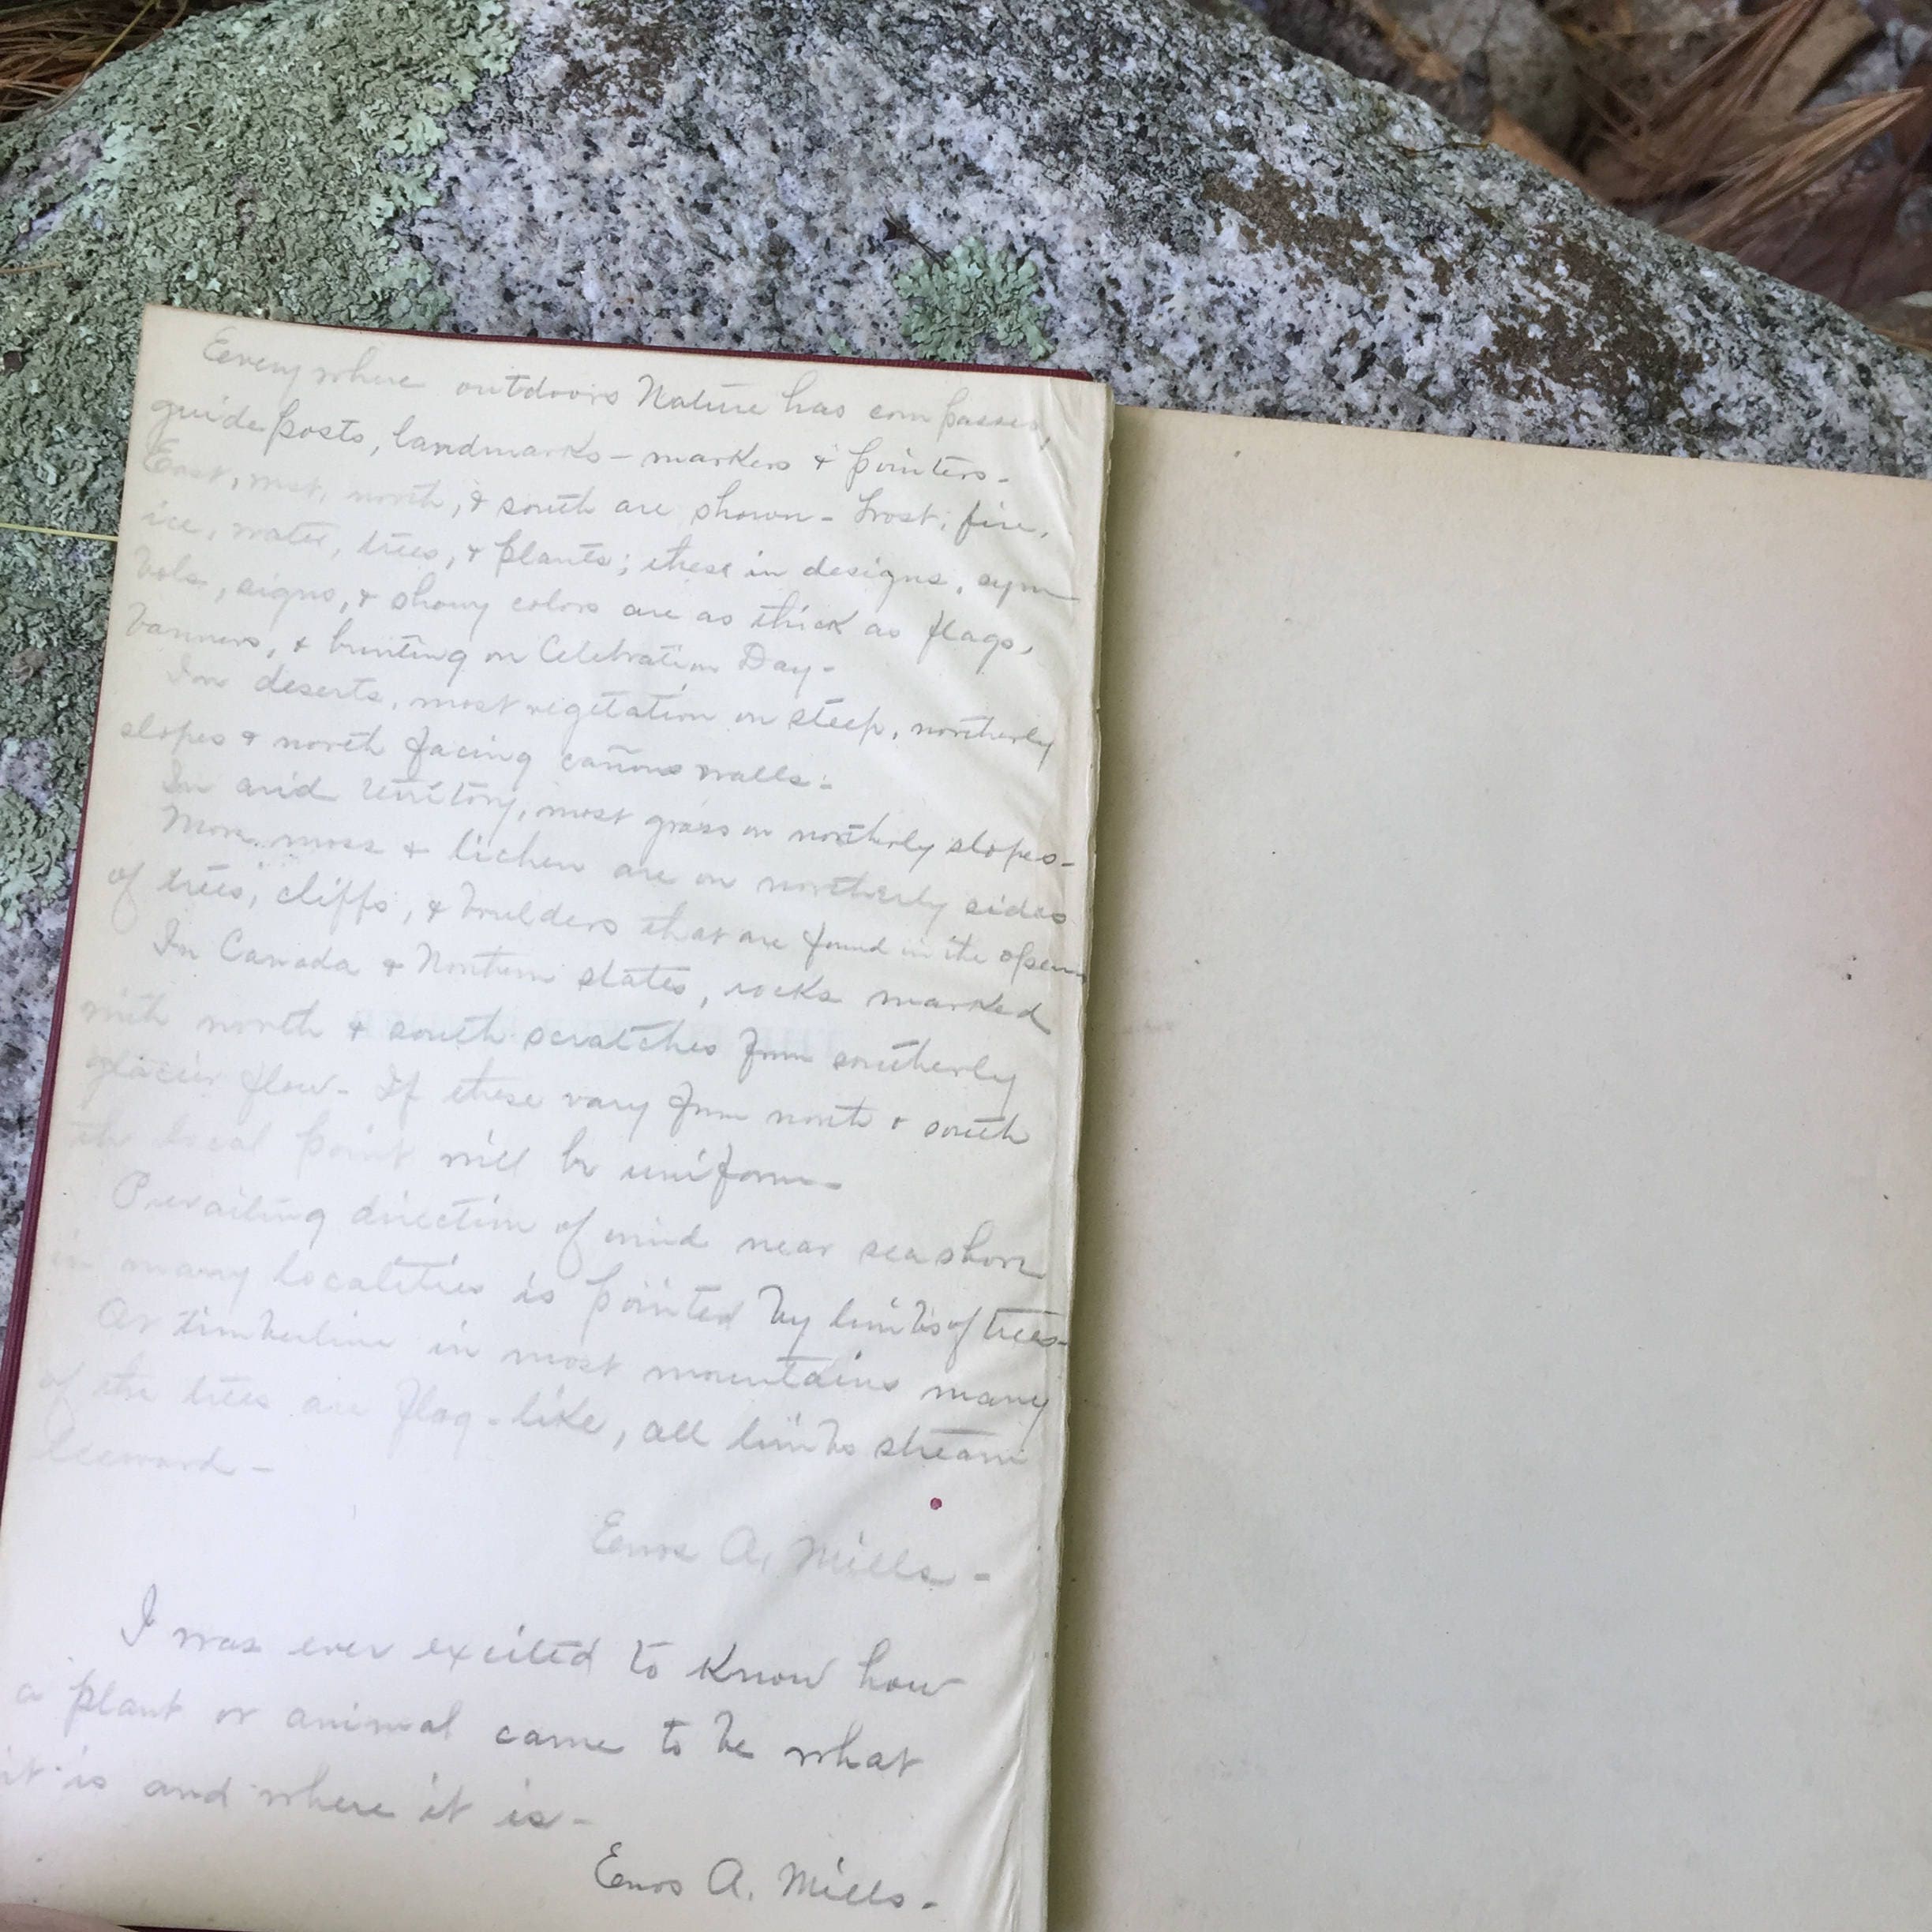 Everywhere outdoors Nature has compasses,
guideposts, landmarks - markers & pointers -
East, west, north, & south are shown - Frost, fire,
ice, water, trees, & plants; these in designs, sym
bols, signs, & showy colors are as thick as flags,
banners, & bunting on Celebration Day -
In deserts, most vegetation on steep, northerly
slopes & north facing cañons walls -
In arid territory, most grass on northerly slopes -
More moss & lichen are on northerly sides
of trees, cliffs, & boulders that are found in the open
In Canada & Northern states, rocks marked
with north & south scratches from southerly
glacier flow - If these vary from north & south
the local point will be uniform -
Prevailing direction of wind near seashore
in many localities is pointed by limbs of trees -
At timberline in most mountains many
of the trees are flag-like, all limbs stream
leeward -
Enos A. Mills -
I was ever excited to know how
a plant or animal came to be what
it is and where it is -
Enos A. Mills -